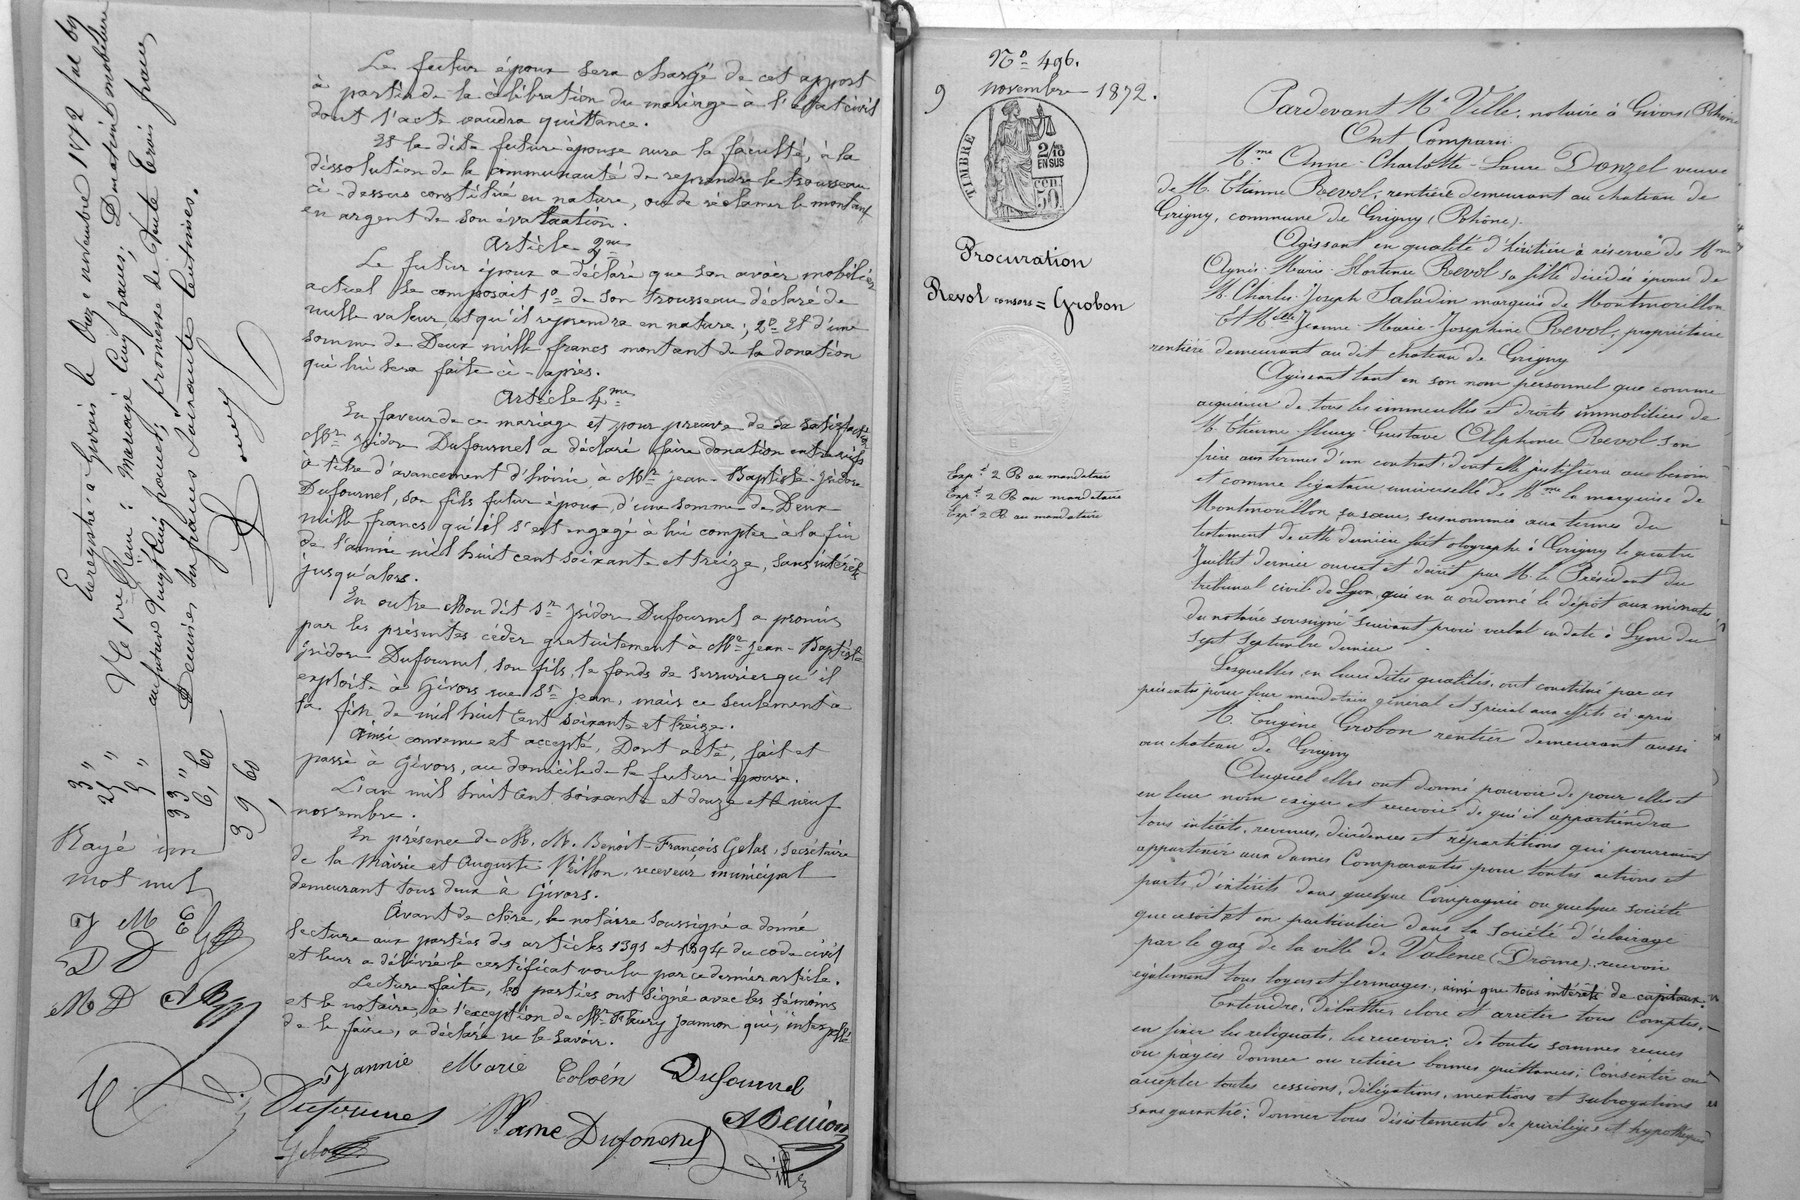 Le futur époux sera chargé de cet apport
à partir de la célébration du mariage à l'état civil
dont l'acte vaudra quittance.
Et la dite future épouse aura la faculté, à la
dissolution de la communauté de reprendre le trousseau
ci-dessus constitué en nature, ou de réclamer le montant
en argent de son évaluation.
Article 2me
Le futur époux a déclaré que son avoir mobilier
actuel se composait 1o de son trousseau déclaré de
nulle valeur, et qu'il reprendra en nature; 2o Et d'une
somme de Deux mille francs montant de la donation
qui lui sera faite ci-après.
Article 4me
En faveur de ce mariage et pour preuve de sa satisfaction
Mr Isidore Dufournel a déclaré faire donation entre vifs
à titre d'avancement d'hoirie à Mr Jean-Baptiste-Isidore
Dufournel, son fils futur époux, d'une somme de Deux
mille francs qu'il s'est engagé à lui compter à la fin
de l'année mil huit cent soixante et treize, sans intérêts
jusqu'alors.
En outre Mon dit Sr Isidore Dufournel a promis
par les présentes céder gratuitement à Mr Jean-Baptiste
Isidore Dufournel, son fils, le fonds de serrurier qu'il
exploite à Givors rue St Jean, mais ce seulement à
la fin de mil huit cent soixante et treize.
Ainsi convenu et accepté, Dont acte, fait et
passé à Givors, au domicile de la future épouse.
L'an mil huit cent soixante et douze et le neuf
novembre.
En présence de M. M. Benoit-François Gelas, secrétaire
de la Mairie et Auguste Veillon, receveur municipal
demeurant tous deux à Givors.
Avant de clore, le notaire soussigné a donné
lecture aux parties des articles 1391 et 1394 du code civil
et leur a délivré le certificat voulu par ce dernier article.
Lecture faite, les parties ont signé avec les témoins
et le notaire, à l'exception de Mr Fleury Joannon qui, interpellé
de le faire, a déclaré ne le savoir.
Marie Dufournel
Dufournel
Dufournel
Enregistré à Givors le Onze novembre 1872 fol 69
Mariage Cinq francs; Donation mobilière
Vingt Cinq francs; promesse de vente Trois francs
Décimes Six francs Soixante Centimes.
3 "
25 "
5 "
33 "
6, 60
39, 60
Rayé un
mot nul
J M E G
D D
MD
No 496.
9 novembre 1872.
TIMBRE
2/10
EN SUS
50
Procuration
Revol consors = Grobon
Expt 2 R au mandataire
Expt 2 R au mandataire
Expt 2 R au mandataire
Pardevant Me Ville, notaire à Givors (Rhône
Ont Comparu
Mme Anne-Charlotte-Laure Donzel veuve
de M. Etienne Revol, rentière demeurant au chateau de
Grigny, commune de Grigny (Rhône).
Agissant en qualité d'héritière à réserve de Mme
Agnès-Marie-Hortense Revol sa fille décédée épouse de
M. Charles-Joseph Saladin marquis de Montmorillon
Et Melle Jeanne-Marie-Josephine Revol, propriétaire
rentière demeurant au dit chateau de Grigny
Agissant tant en son nom personnel que comme
acquéreur de tous les immeubles et droits immobiliers de
M. Etienne-Fleury-Gustave Alphonse Revol son
frère aux termes d'un contrat dont elle justifiera au besoin
et comme légataire universelle de Mme la marquise de
Montmorillon sa sœur, susnommée aux termes du
testament de cette dernière fait olographe à Grigny le quatre
Juillet dernier ouvert et décrit par M. le Président du
tribunal civil de Lyon, qui en a ordonné le dépôt aux minutes
du notaire soussigné suivant procès verbal en date à Lyon du
sept Septembre dernier
Lesquelles, en leurs dites qualités, ont constitué par ces
présentes pour leur mandataire général et spécial aux effets ci après
M. Eugène Grobon rentier demeurant aussi
au chateau de Grigny
Auquel elles ont donné pouvoir de pour elles et
en leur nom exiger et recevoir de qu'il appartiendra
tous intérêts, revenus, dividendes et répartitions qui pourraient
appartenir aux dames Comparantes pour toutes actions et
parts d'intérêts dans quelque Compagnie ou quelque société
que ce soit et en particulier dans la Société d'éclairage
par le gaz de la ville de Valence (Drôme), recevoir
également tous loyers et fermages, ainsi que tous intérêts de capitaux.
Entendre, débattre, clore et arrêter tous Comptes,
en fixer les reliquats, les recevoir; de toutes sommes reçues
ou payées donner ou retirer bonnes quittances; Consentir ou
accepter toutes cessions, délégations, mentions et subrogations
sans garantie; donner tous désistements de privilèges et hypothèques